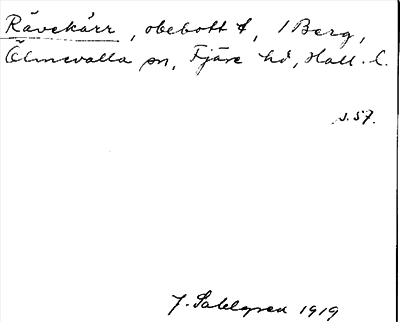 Rävekärr, obebott t, 1 Berg,
Ölmevalla sn, Fjäre hd, Hall. l.
s. 57.
J. Sahlgren 1919